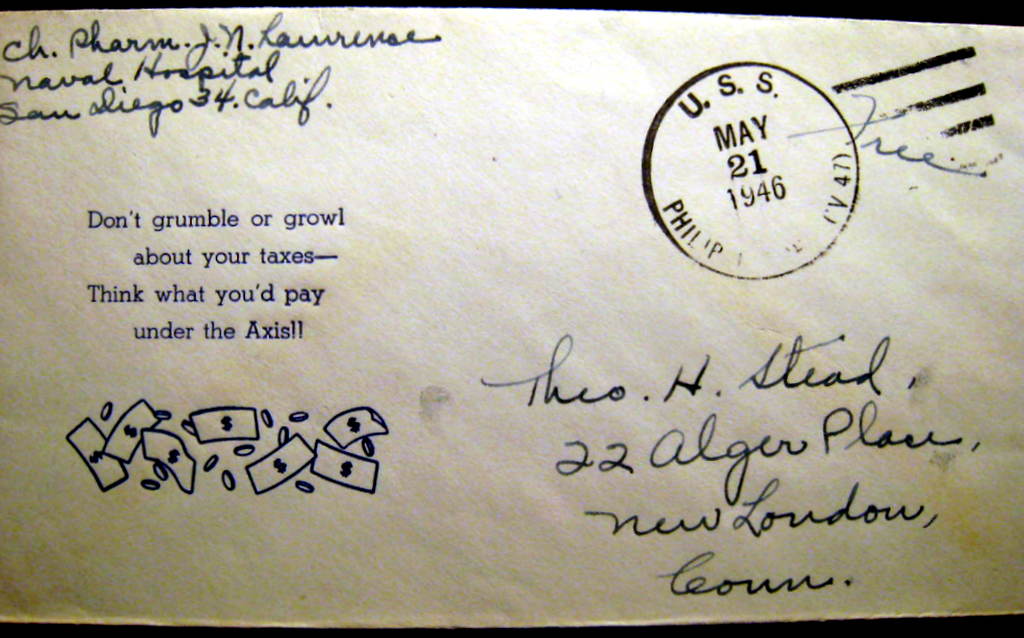 Ch. Pharm. J. N. Lawrence
Naval Hospital
San Diego 34. Calif.
U. S. S.
MAY
21
1946
PHILIP
(CV 47)
Free
Don't grumble or growl
about your taxes—
Think what you'd pay
under the Axis!!
$ $ $ $ $ $ $
Theo. H. Stead,
22 Alger Place,
New London,
Conn.